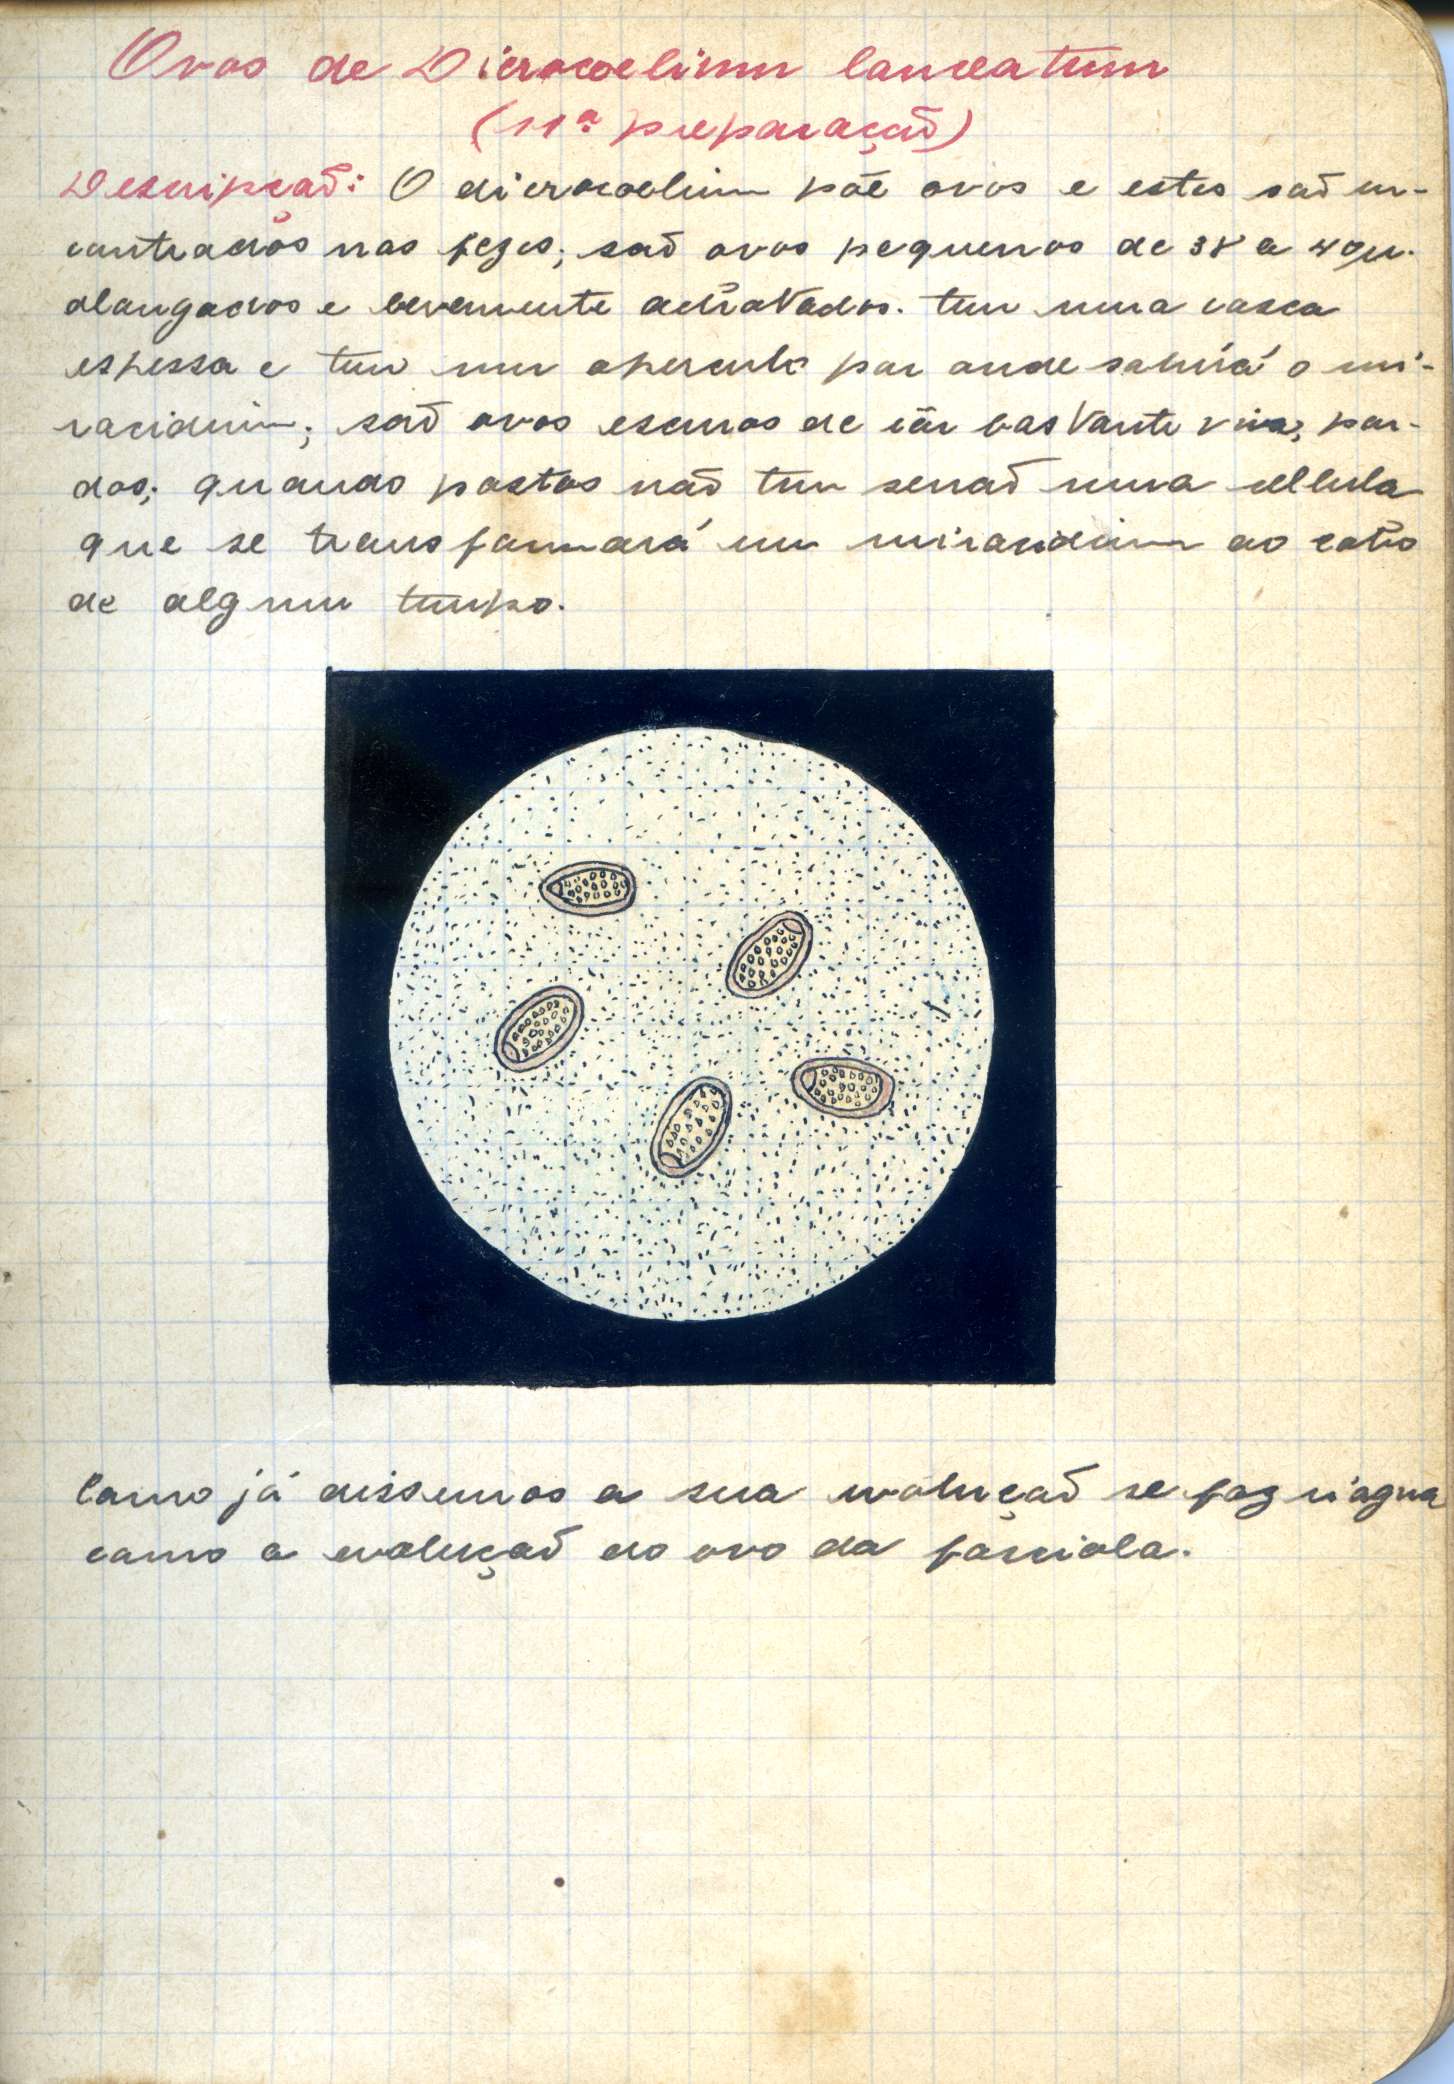 Ovos de Dicrocoelium lanceatum
(11ª preparação)
Descripção: O dicrocoelium põe ovos e estes são en-
contrados nas fezes; são ovos pequenos de 38 a 40µ.
alongados e levemente achatados. tem uma casca
espessa e tem um operculo por onde sahirá o mi-
racidium; são ovos escuros de côr bastante viva, par-
dos; quando postos não tem senão uma cellula
que se transformará em miracidium ao cabo
de algum tempo.
Como já dissemos a sua evolução se faz n'agua
como a evolução do ovo da fasciola.